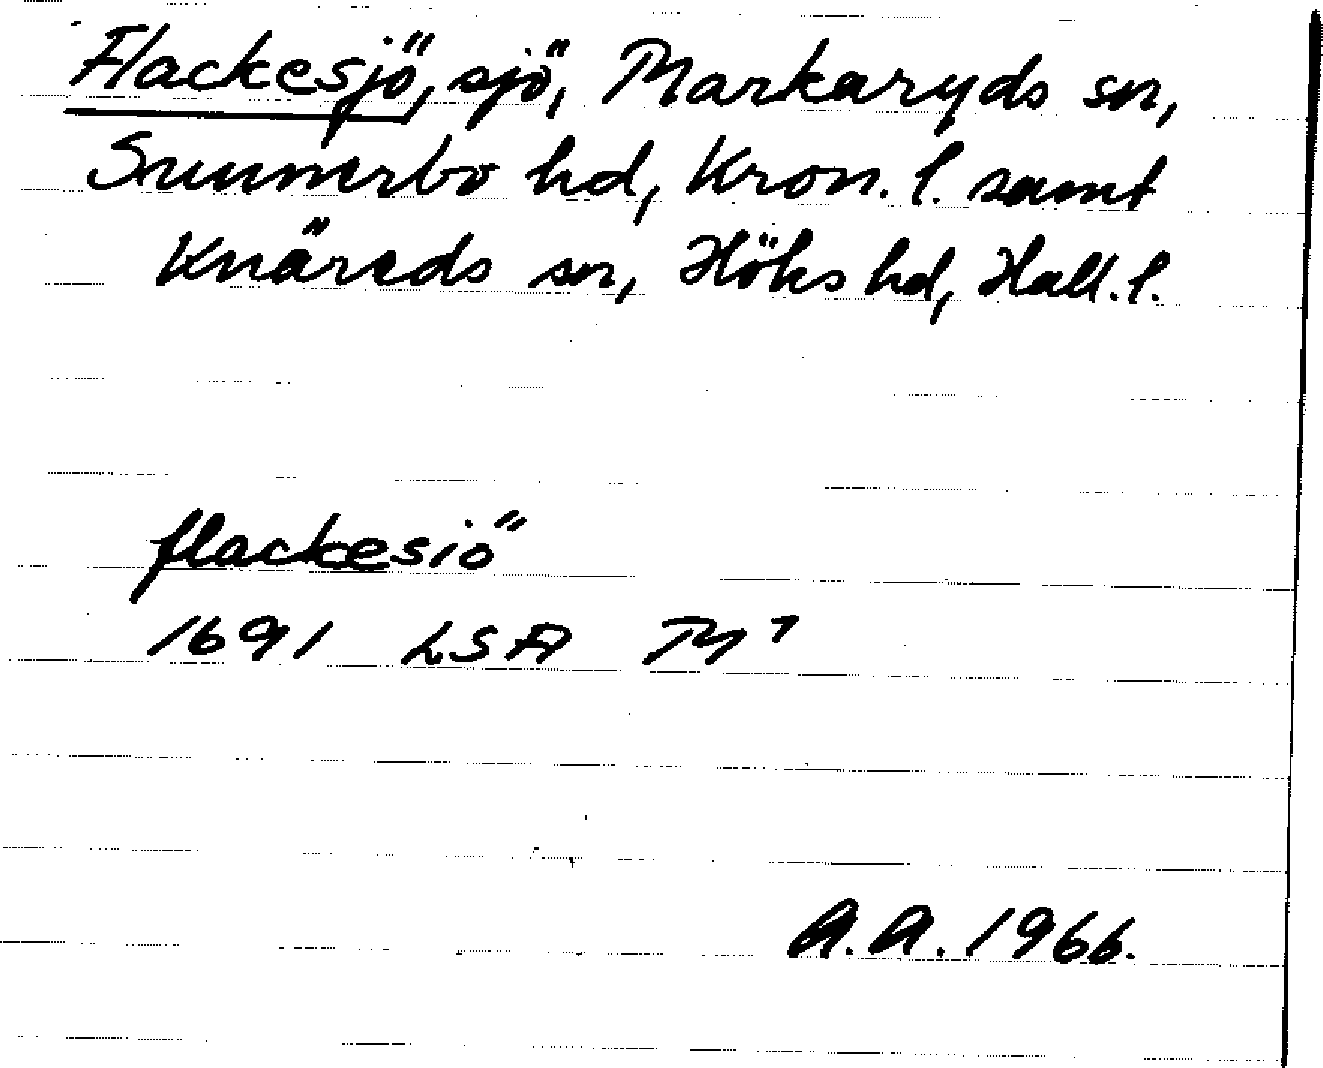 Flackesjö, sjö, Markaryds sn,
Sunnerbo hd, Kron. l. samt
Knäreds sn, Höks hd, Hall. l.
flackesiö
1691 LSA M7
A.A. 1966.